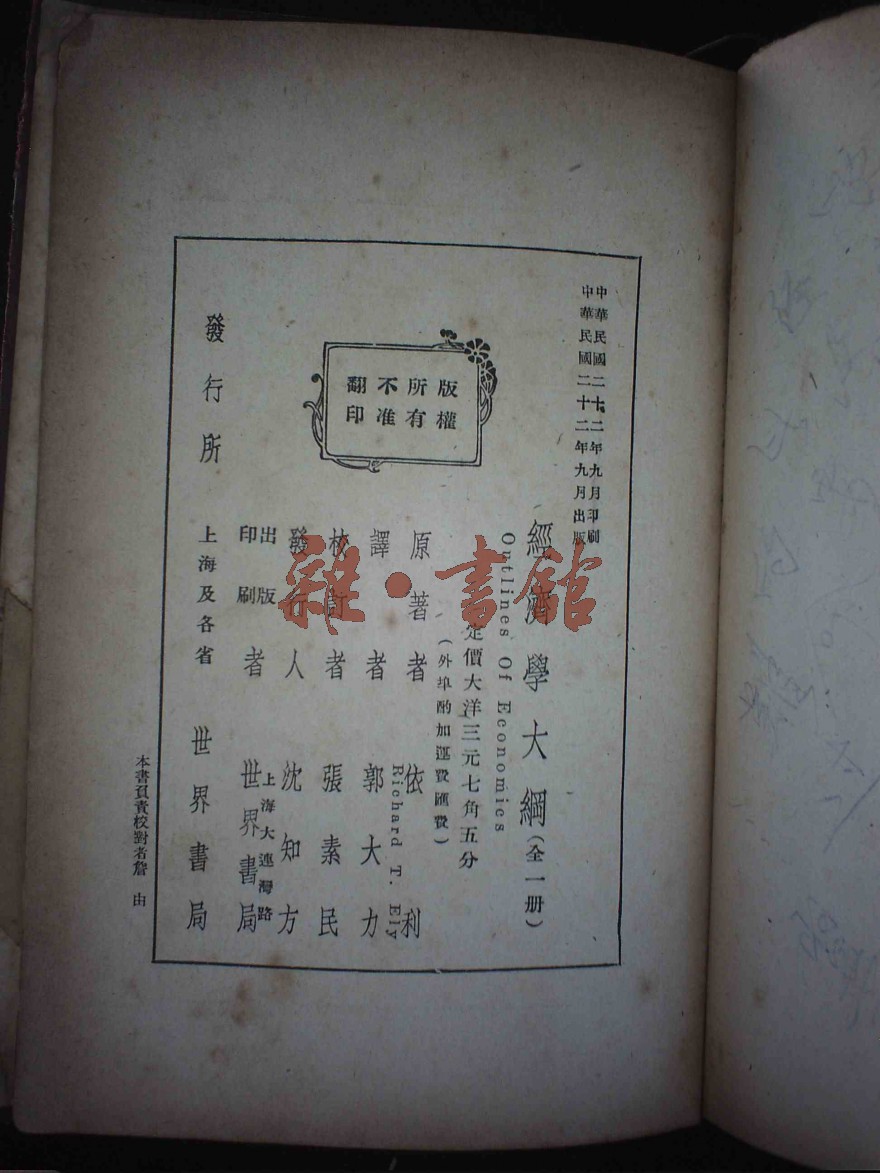 中華民國二十二年九月印刷
中華民國二十二年九月出版
經濟學大綱(全一册)
Ontlines Of Economics
定價大洋三元七角五分
(外埠酌加運費匯費)
原著者 依利
Richard T. Ely
譯者 郭大力
校訂者 張素民
發行人 沈知方
上海大連灣路
出版印刷者 世界書局
發行所 上海及各省 世界書局
版權所有不准翻印
本書負責校對者詹由
雜·書館